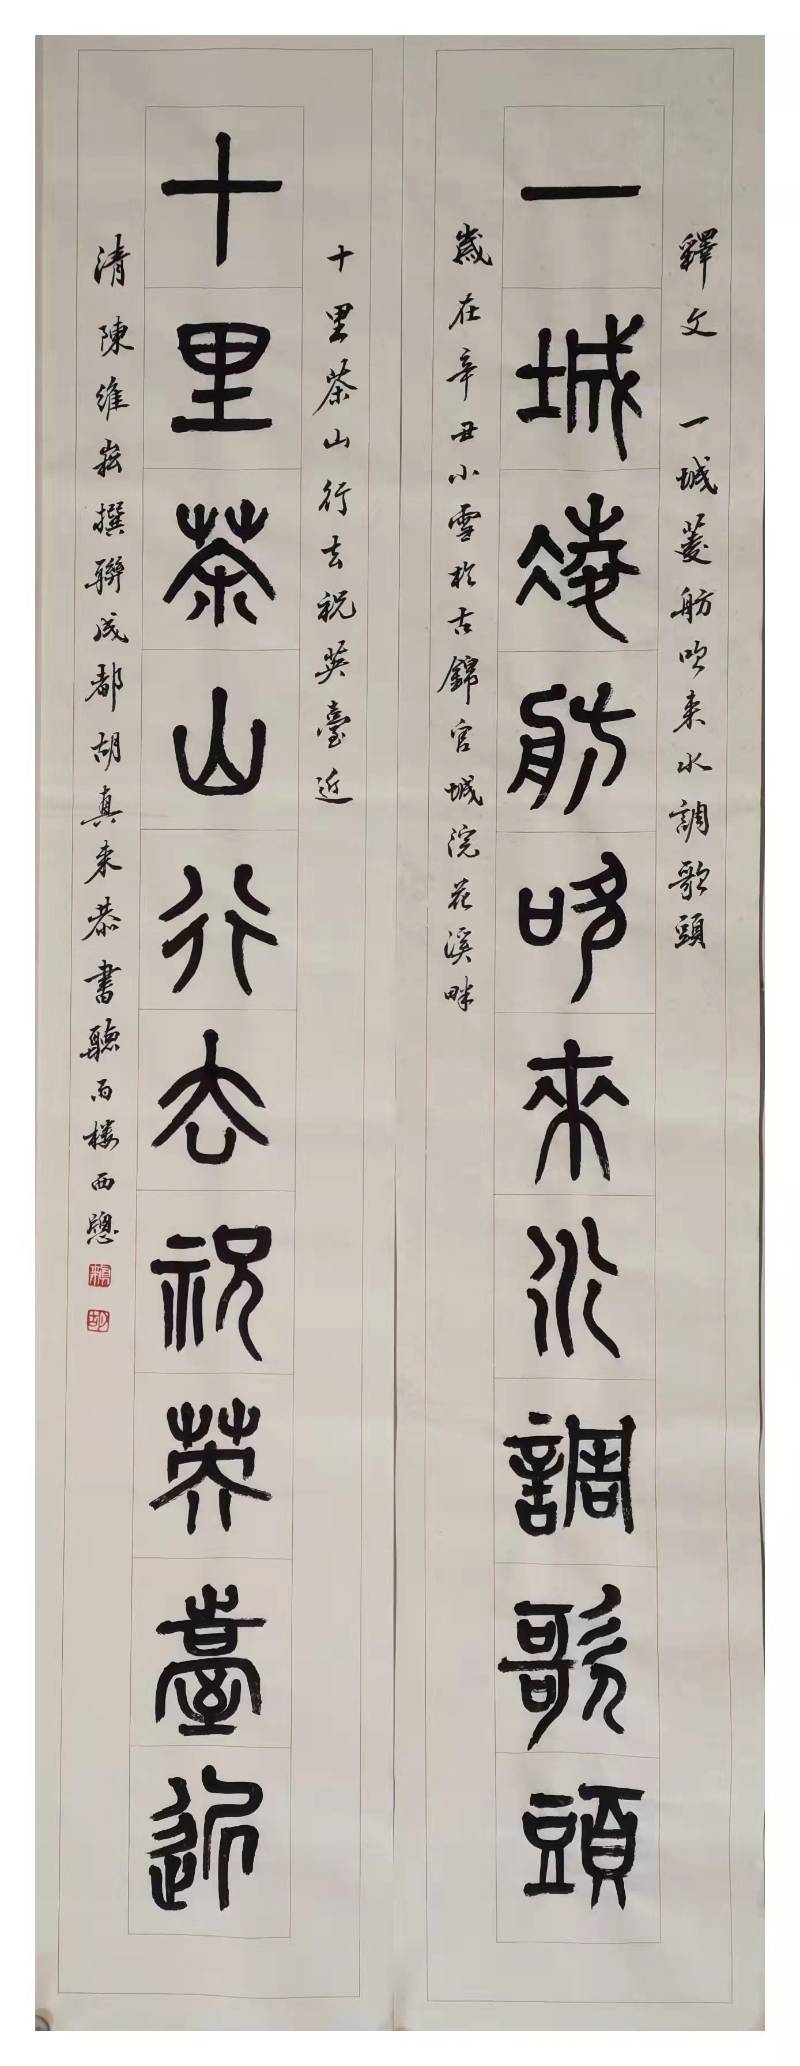 釋文 一城菱舫吹来水調歌頭
一城菱舫吹來水調歌頭
歲在辛丑小雪於古錦官城浣花溪畔
十里茶山行去祝英臺近
十里茶山行去祝英臺近
清陳維崧撰聯成都胡真来恭書聽雨楼西牕